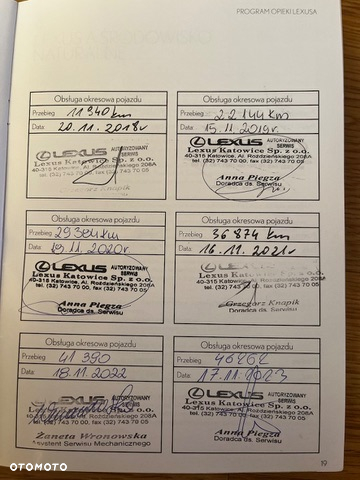 PROGRAM OPIEKI LEXUSA
Obsługa okresowa pojazdu
Przebieg: 11 940 km
Data: 20.11.2018r
LEXUS AUTORYZOWANY SERWIS
Lexus Katowice Sp. z o.o.
40-315 Katowice, Al. Roździeńskiego 208A
tel. (32) 743 70 00, fax (32) 743 70 05
Grzegorz Knapik
Doradca ds. Serwisu
Obsługa okresowa pojazdu
Przebieg: 22 144 km
Data: 15.11.2019r.
LEXUS AUTORYZOWANY SERWIS
Lexus Katowice Sp. z o.o.
40-315 Katowice, Al. Roździeńskiego 208A
tel. (32) 743 70 00, fax (32) 743 70 05
Anna Piegza
Doradca ds. Serwisu
Obsługa okresowa pojazdu
Przebieg: 29 384 km
Data: 19.11.2020r
LEXUS AUTORYZOWANY SERWIS
Lexus Katowice Sp. z o.o.
40-315 Katowice, Al. Roździeńskiego 208A
tel. (32) 743 70 00, fax (32) 743 70 05
Anna Piegza
Doradca ds. Serwisu
Obsługa okresowa pojazdu
Przebieg: 36 874 km
Data: 16.11.2021r
LEXUS AUTORYZOWANY SERWIS
Lexus Katowice Sp. z o.o.
40-315 Katowice, Al. Roździeńskiego 208A
tel. (32) 743 70 00, fax (32) 743 70 05
Grzegorz Knapik
Doradca ds. Serwisu
Obsługa okresowa pojazdu
Przebieg: 41 390
Data: 18.11.2022
LEXUS AUTORYZOWANY SERWIS
Lexus Katowice Sp. z o.o.
40-315 Katowice, Al. Roździeńskiego 208A
tel. (32) 743 70 00, fax (32) 743 70 05
Żaneta Wronowska
Asystent Serwisu Mechanicznego
Obsługa okresowa pojazdu
Przebieg: 46262
Data: 17.11.2023
LEXUS AUTORYZOWANY SERWIS
Lexus Katowice Sp. z o.o.
40-315 Katowice, Al. Roździeńskiego 208A
tel. (32) 743 70 00, fax (32) 743 70 05
Anna Piegza
Doradca ds. Serwisu
19
OTOMOTO